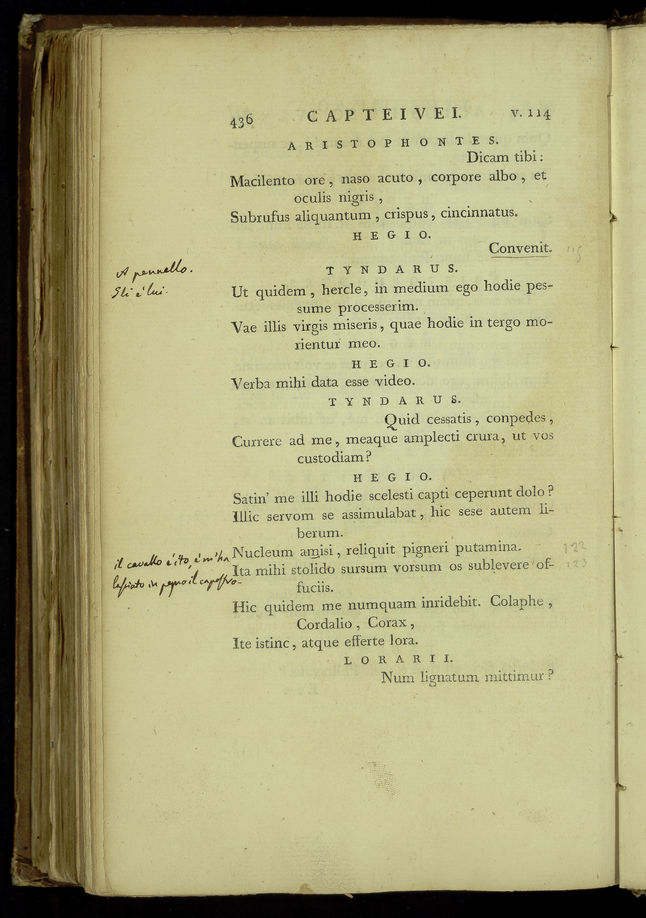 436 CAPTEIVEI. V. 114
ARISTOPHONTES.
Dicam tibi:
Macilento ore, naso acuto, corpore albo, et
oculis nigris,
Subrufus aliquantum, crispus, cincinnatus.
HEGIO.
Convenit. 115
A pennello.
Gli è lui.
TYNDARUS.
Ut quidem, hercle, in medium ego hodie pes-
sume processerim.
Vae illis virgis miseris, quae hodie in tergo mo-
rientur meo.
HEGIO.
Verba mihi data esse video.
TYNDARUS.
Quid cessatis, conpedes,
Currere ad me, meaque amplecti crura, ut vos
custodiam?
HEGIO.
Satin' me illi hodie scelesti capti ceperunt dolo?
Illic servom se assimulabat, hic sese autem li-
berum.
il cavallo è ito, e m'ha
lasciato in pegno il capestro.
Nucleum amisi, reliquit pigneri putamina. 122
Ita mihi stolido sursum vorsum os sublevere of- 123
fuciis.
Hic quidem me numquam inridebit. Colaphe,
Cordalio, Corax,
Ite istinc, atque efferte lora.
LORARII.
Num lignatum mittimur?